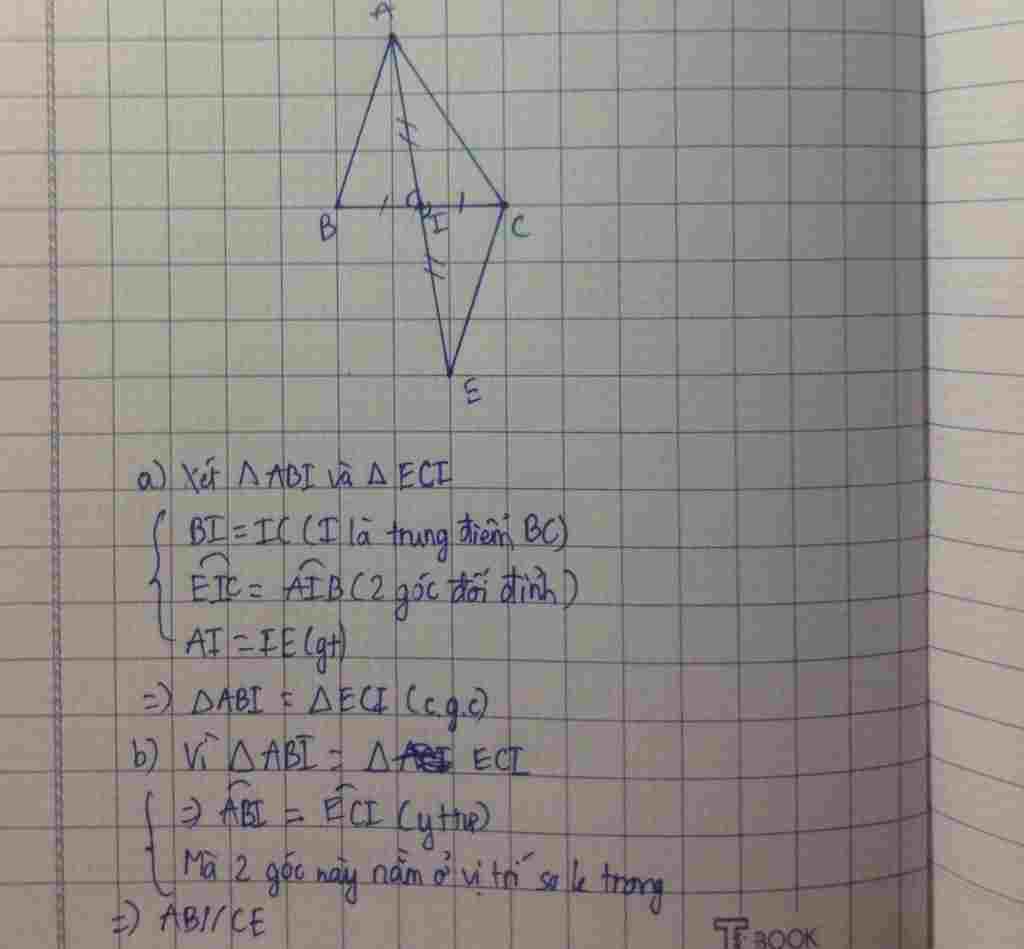 A
B
I
C
E
a) Xét ΔABI và ΔECI
BI = IC (I là trung điểm BC)
EIC = AIB (2 góc đối đỉnh)
AI = IE (gt)
=) ΔABI = ΔECI (c.g.c)
b) Vì ΔABI = Δ ECI
=) ABI = ECI (ytứ)
Mà 2 góc này nằm ở vị trí so le trong
=) AB//CE
T BOOK